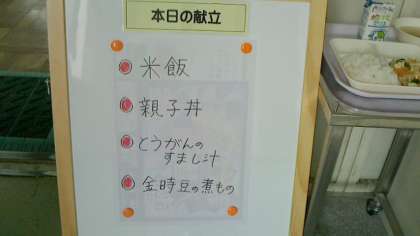 本日の献立
米飯
親子丼
とうがんの
すまし汁
金時豆の煮もの